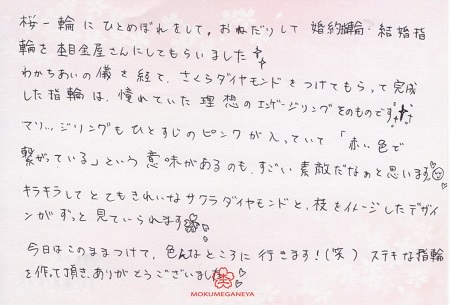 桜一輪にひとめぼれをして、おねだりして婚約指輪・結婚指
輪を杢目金屋さんにしてもらいました
わかちあいの儀を経て、さくらダイヤモンドをつけてもらって完成
した指輪は、憧れていた理想のエンゲージリングそのものです
マリッジリングもひとすじのピンクが入っていて「赤い色で
繋がっている」という意味があるのも、すごい素敵だなぁと思います。
キラキラしてとてもきれいなサクラダイヤモンドと、枝をイメージしたデザイ
ンがずっと見ていられます
今日はこのままつけて、色んなところに行きます!(笑)ステキな指輪
を作って頂き、ありがとうございました
MOKUMEGANEYA